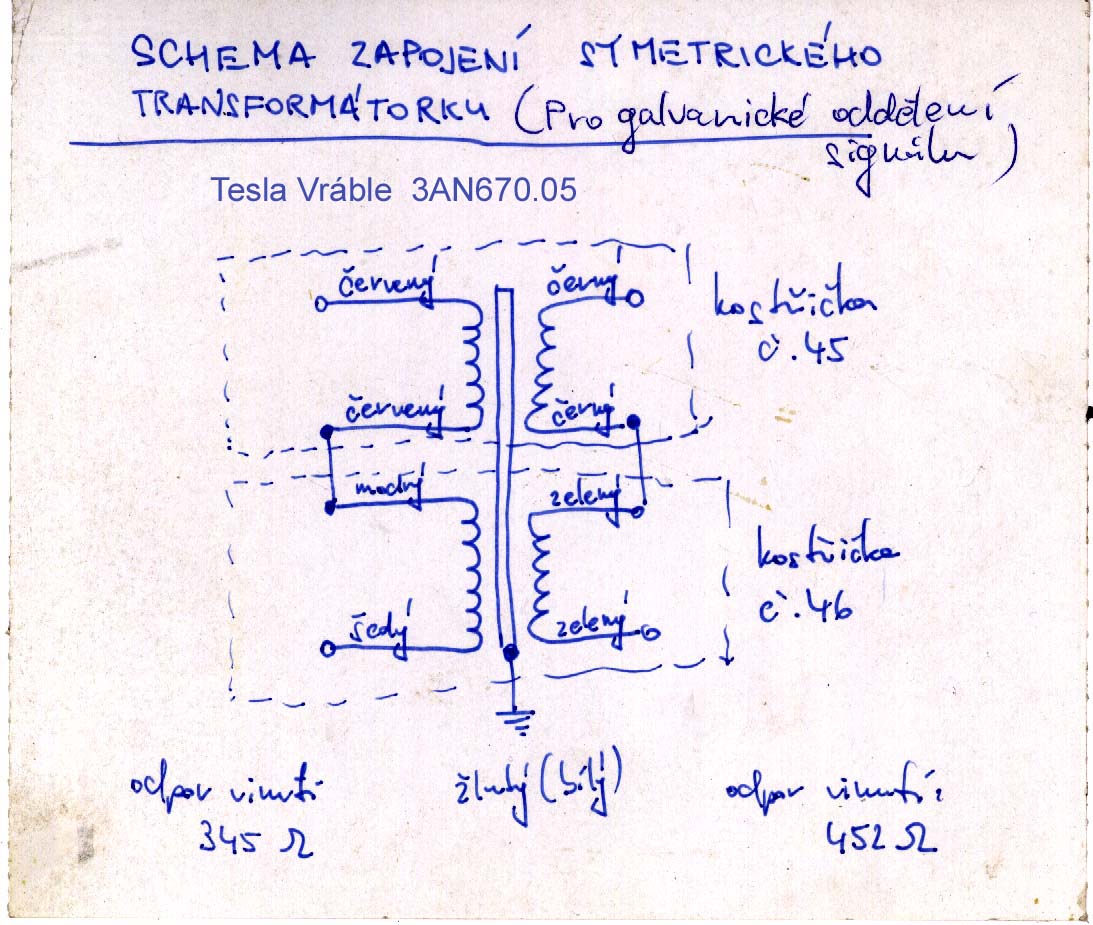 SCHEMA ZAPOJENÍ SYMETRICKÉHO
TRANSFORMÁTORKU (Pro galvanické oddělení
signálu)
Tesla Vráble 3AN670.05
červený
černý
kostřička
č.45
červený
černý
modrý
zelený
kostřička
č.46
šedý
zelený
odpor vinutí
345 Ω
žlutý (bílý)
odpor vinutí:
452 Ω